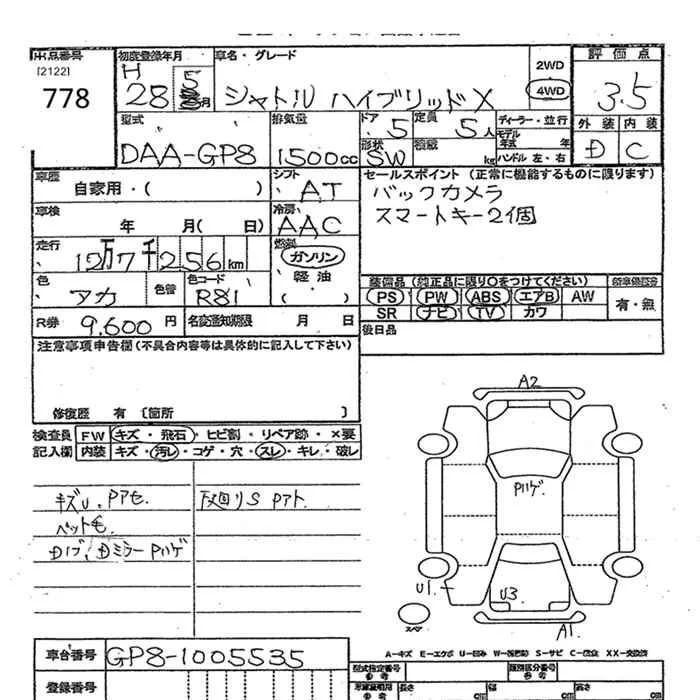 出品番号 初度登録年月 車名・グレード 2WD 評価点
[2122] H 5 4WD
778 28 月 シャトル ハイブリッド X 3.5
型式 排気量 ドア 5 定員 5人 ディーラー・並行 外装 内装
モデル年式 年
DAA-GP8 1500cc 形状 SW 積載 kg ハンドル 左・右 D C
車歴 シフト セールスポイント (正常に機能するものに限ります)
自家用・( ) AT バックカメラ
車検 冷房 スマートキー2個
年 月( 日) AAC
走行 燃料
12万7千256km ガソリン
色 色替 色コード 軽油 装備品 (純正品に限り○をつけてください)
アカ R81 ( ) PS PW ABS エアB AW 有・無
SR ナビ TV カワ
R券 9,600円 名変通知期限 月 日 後日品
注意事項申告欄 (不具合内容等は具体的に記入して下さい)
修復歴 有 [箇所 ]
検査員 FW キズ・飛石・ヒビ割・リペア跡・×要
記入欄 内装 キズ・汚レ・コゲ・穴・スレ・キレ・破レ
キズU、Pアセ
ペット毛
Dノブ、Dミラー Pハゲ
A2
Pハゲ
U1
U3
A1
スペア
A-キズ E-エクボ U-凹み S-サビ
車台番号 GP8-1005535
型式指定番号 類別区分番号
参考
登録番号 長さ cm 幅 cm 高さ cm
参考